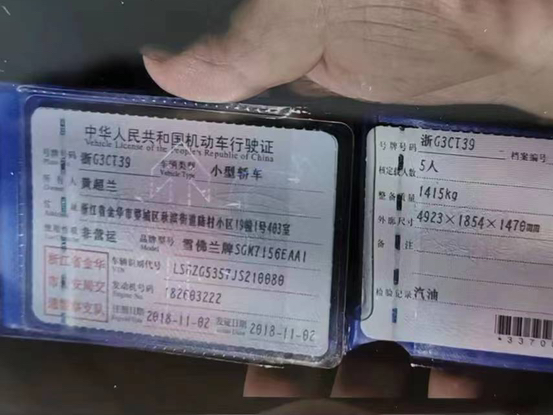 中华人民共和国机动车行驶证
Vehicle License of the People's Republic of China
号牌号码 浙G3CT39 车辆类型 小型轿车
Vehicle Type
所有人 黄超兰
住址 浙江省金华市婺城区秋滨街道路村小区19幢1号403室
使用性质 非营运 品牌型号 雪佛兰牌SGK7156EAA1
Model
浙江省金华
市公安局交
通警察支队
车辆识别代号
VIN
发动机号码 182603222
Engine No.
注册日期 2018-11-02 发证日期 2018-11-02
号牌号码 浙G3CT39 档案编号
核定载人数 5人
整备质量 1415kg
外廓尺寸 4923×1854×1470
备注
检验记录 汽油